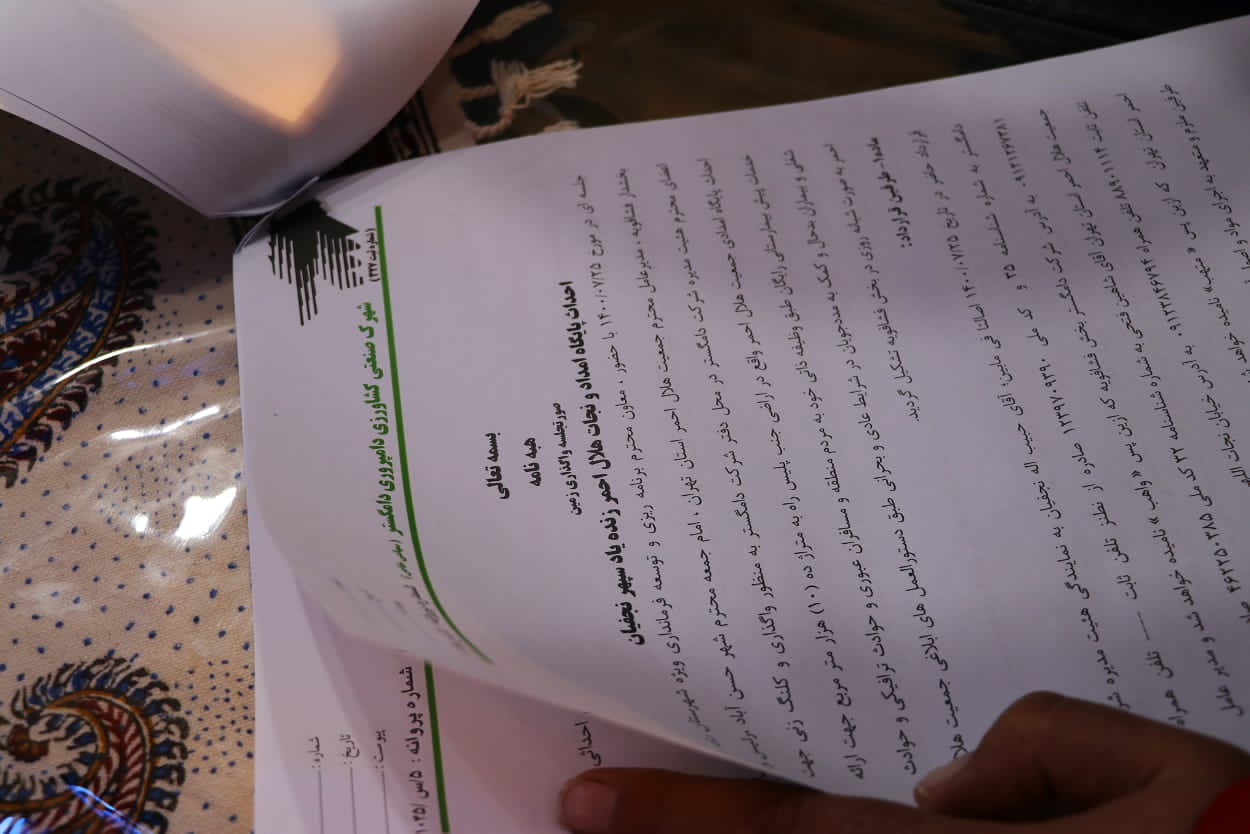 (شماره ثبت ۳۴۷)
شهرک صنعتی کشاورزی دامپروری دامگستر (سهامی خاص)
شماره :
تاریخ :
پیوست :
شماره پروانه : ۵/س/۱۰۴۵
بسمه تعالی
هبه نامه
صورتجلسه واگذاری زمین
احداث پایگاه امداد و نجات هلال احمر زنده یاد سپهر نجفیان
جلسه ای در مورخ ۱۴۰۰/۰۷/۲۵ با حضور ، معاون محترم برنامه ریزی و توسعه فرمانداری ویژه شهرستان
بخشدار فشافویه ، مدیرعامل محترم جمعیت هلال احمر استان تهران ، امام جمعه محترم شهر حسن آباد
اعضای محترم هیئت مدیره شرکت دامگستر در محل دفتر شرکت دامگستر به منظور واگذاری و کلنگ زنی جهت
احداث پایگاه امدادی جمعیت هلال احمر واقع در اراضی جنب پلیس راه به متراژ ده (۱۰) هزار متر مربع جهت ارائه
خدمات پیش بیمارستانی رایگان طبق وظیفه ذاتی خود به مردم منطقه و مسافران عبوری و حوادث ترافیکی و حوادث
شغلی و بیماران بدحال و کمک به مددجویان در شرایط عادی و بحرانی طبق دستورالعمل های ابلاغی جمعیت هلال
احمر به صورت شبانه روزی در بخش فشافویه تشکیل گردید.
ماده۱- طرفین قرارداد:
قرارداد حاضر در تاریخ ۱۴۰۰/۰۷/۲۵ اصالتا فی مابین؛ آقای حبیب اله نجفیان به نمایندگی هئیت مدیره
دامگستر به شماره شناسنامه ۲۵ و کد ملی صادره از نطنز تلفن ثابت ---- تلفن همراه
۰۹۱۲۱۲۶۷۳۸۱ به آدرس شرکت دامگستر بخش فشافویه که ازین پس «واهب» نامیده خواهد شد و مدیر عامل
جمعیت هلال احمر استان تهران آقای شاهین فتحی به شماره شناسنامه ۳۲ کد ملی
تلفن ثابت ۸۸۹۰۱۱۱۴ تلفن همراه ۰۹۱۲۳۸۴۶۷۹۴ به آدرس خیابان نجات اللهی
احمر استان تهران که ازین پس «متهب» نامیده خواهد
طرفین ملزم و متعهد به اجرای مواد و
احداثی